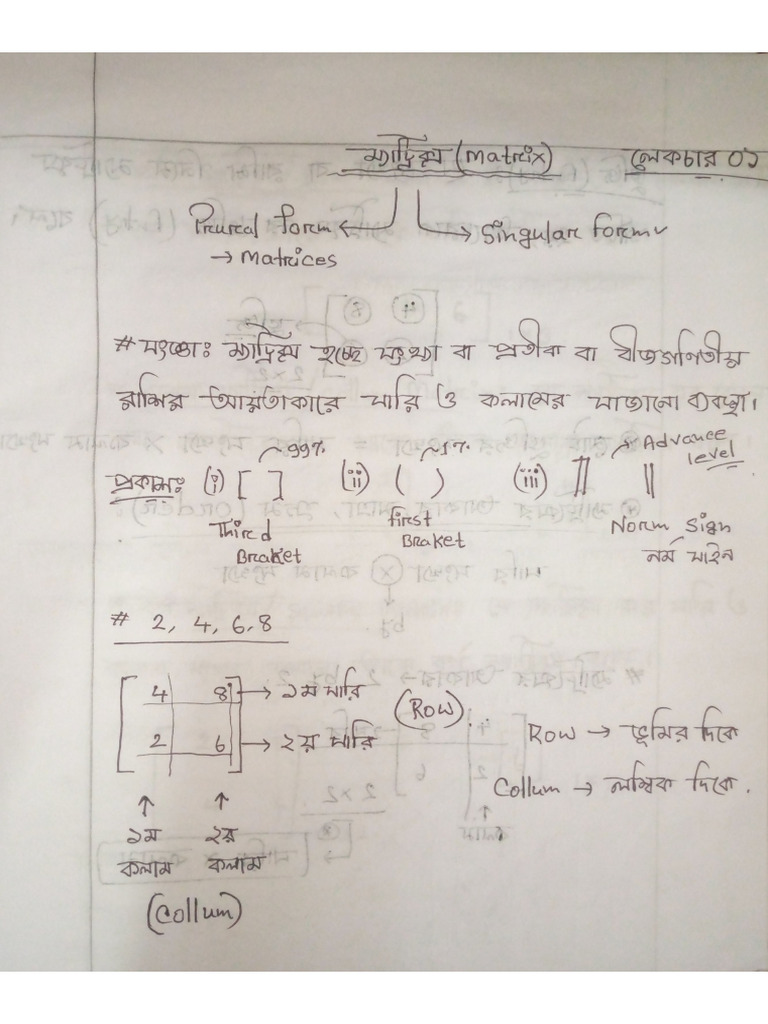 ম্যাট্রিক্স (Matrix) লেকচার ০১
Plureal form ← → Singular form
→ Matrices
# সংজ্ঞাঃ ম্যাট্রিক্স হচ্ছে সংখ্যা বা প্রতীক বা বীজগণিতীয়
রাশির আয়তাকারে সারি ও কলামের সাজানো ব্যবস্থা।
প্রকাশঃ (i) [ ] ~99% (ii) ( ) ~1% (iii) || || ~ Advance level
Third Braket First Braket Norm Sign
নর্ম সাইন
# 2, 4, 6, 8
4 8 → ১ম সারি
2 6 → ২য় সারি
(Row)
Row → ভূমির দিকে
Collum → লম্বিক দিকে.
↑ ↑
১ম ২য়
কলাম কলাম
(Collum)